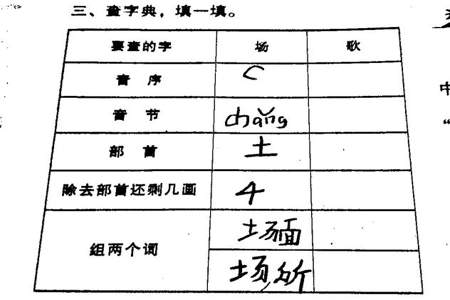 三、查字典，填一填。
要查的字 场 歌
音序 C
音节 chǎng
部首 土
除去部首还剩几画 4
组两个词 场面
场所
中